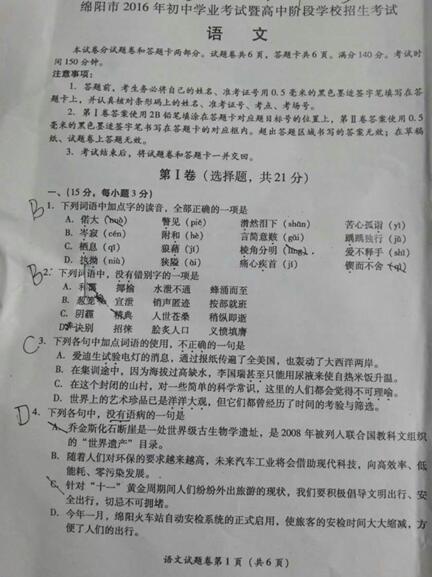 绵阳市 2016 年初中学业考试暨高中阶段学校招生考试
语 文
本试卷分试题卷和答题卡两部分。试题卷共 6 页，答题卡共 6 页。满分 140 分。考试时
间 150 分钟。
注意事项：
1. 答题前，考生务必将自己的姓名、准考证号用 0.5 毫米的黑色墨迹签字笔填写在答
题卡上，并认真核对条形码上的姓名、准考证号、考点、考场号。
2. 第Ⅰ卷答案使用 2B 铅笔填涂在答题卡对应题目标号的位置上，第Ⅱ卷答案使用 0.5
毫米的黑色墨迹签字笔书写在答题卡的对应框内。超出答题区域书写的答案无效；在草稿
纸、试题卷上答题无效。
3. 考试结束后，将试题卷和答题卡一并交回。
第Ⅰ卷（选择题，共 21 分）
一、（15 分，每小题 3 分）
B 1. 下列词语中加点字的读音，全部正确的一项是
A. 偌大（nuò） 瞥见（piē） 潸然泪下（shān） 苦心孤诣（yì）
B. 岑寂（cén） 附和（hè） 言简意赅（gāi） 踽踽独行（jǔ）
C. 栖息（qī） 狼藉（jí） 棱角分明 爱不释手（shì）
D. 执拗（niù） 狭隘（ài） 痛心疾首（jí） 锲而不舍
B 2. 下列词语中，没有错别字的一项是
A. 揶揄 水泄不通 蜂涌而至
B. 葱茏 宣泄 销声匿迹 按部就班
C. 阴霾 精典 人世苍桑 稍纵即逝
D. 诀别 招徕 脍炙人口 义愤填膺
C 3. 下列各句中加点词语的使用，不正确的一句是
A. 爱迪生试验电灯的消息，通过报纸传遍了全美国，也轰动了大西洋两岸。
B. 在集训途中，因为海拔过高缺水，李国瑞甚至只能用尿液来使自热米饭升温。
C. 在这个封闭的山村，对一些简单的科学常识，这里的人们都会觉得不可理喻。
D. 世界上的艺术珍品已是洋洋大观，但它们都曾经历了时间的考验与筛选。
D 4. 下列各句中，没有语病的一句是
A. 乔金斯化石断崖是一处世界级古生物学遗址，是 2008 年被列人联合国教科文组织
的“世界遗产”目录。
B. 随着人们对环保的要求越来越高，未来汽车工业将会借助现代科技，向高效率、低
能耗、零污染发展。
C. 针对“十一”黄金周期间人们纷纷外出旅游的现状，我们要积极倡导文明出行、安
全出行，切忌不可拥堵。
D. 今年一月，绵阳火车站自动安检系统的正式启用，使旅客的安检时间大大缩减，方
便了人们的出行。
语文试题卷第 1 页（共 6 页）